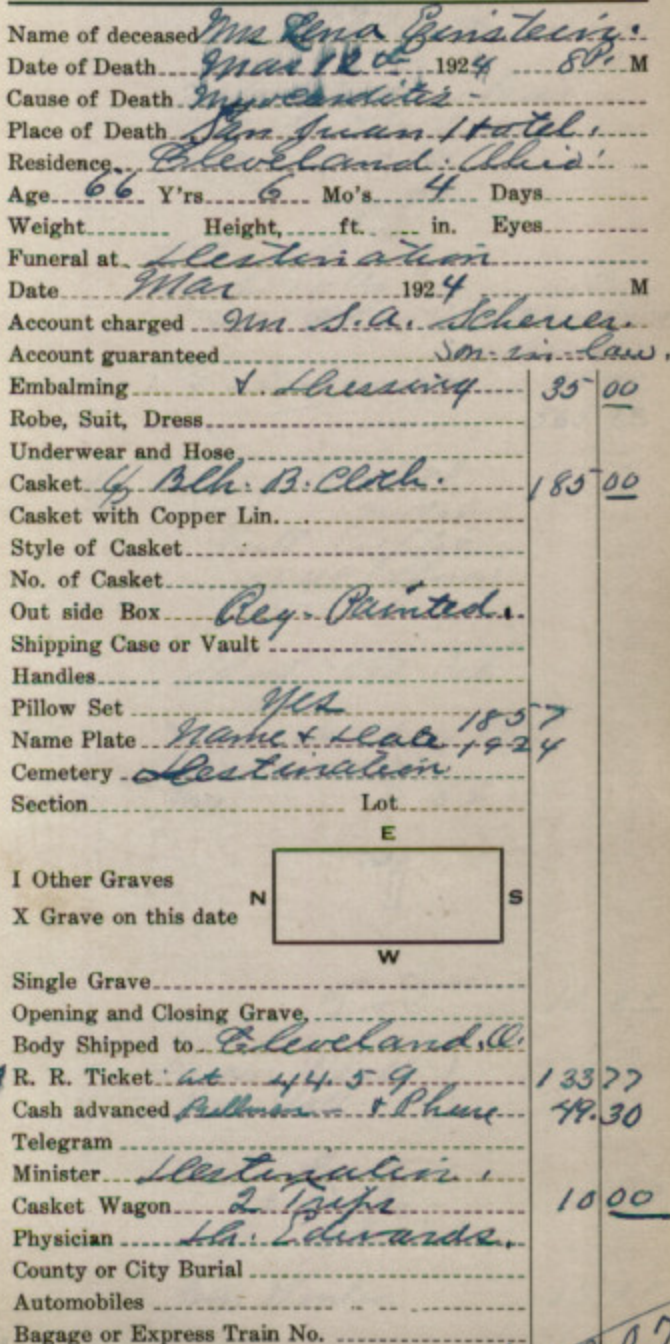 Name of deceased Mrs Lena Einstein.
Date of Death Mar 12th 1924 8 P. M
Cause of Death Myocarditis -
Place of Death San Juan Hotel.
Residence Cleveland. Ohio.
Age 66 Y'rs 6 Mo's 4 Days
Weight Height, ft. in. Eyes
Funeral at Destination
Date Mar 1924 M
Account charged Mr S.A. Scherer.
Account guaranteed Son-in-law.
Embalming & Dressing 35 00
Robe, Suit, Dress
Underwear and Hose
Casket Blk. B. Cloth. 185 00
Casket with Copper Lin.
Style of Casket
No. of Casket
Out side Box Reg. Painted.
Shipping Case or Vault
Handles
Pillow Set Yes
Name Plate Name & Date 1857 1924
Cemetery Destination
Section Lot
E
I Other Graves
N S
X Grave on this date
W
Single Grave
Opening and Closing Grave,
Body Shipped to Cleveland. O.
R. R. Ticket at 44.59 133 77
Cash advanced Pullman & Phone 49.30
Telegram
Minister Destination.
Casket Wagon 2 Trips 10 00
Physician Dr. Edwards.
County or City Burial
Automobiles
Bagage or Express Train No.